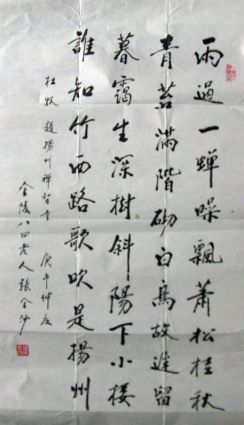 雨過一蟬噪飄蕭松桂秋
青苔滿階砌白鳥故遲留
暮靄生深樹斜陽下小楼
誰知竹西路歌吹是揚州
杜牧 題揚州禪智寺 庚午仲夏
金陵八四老人張